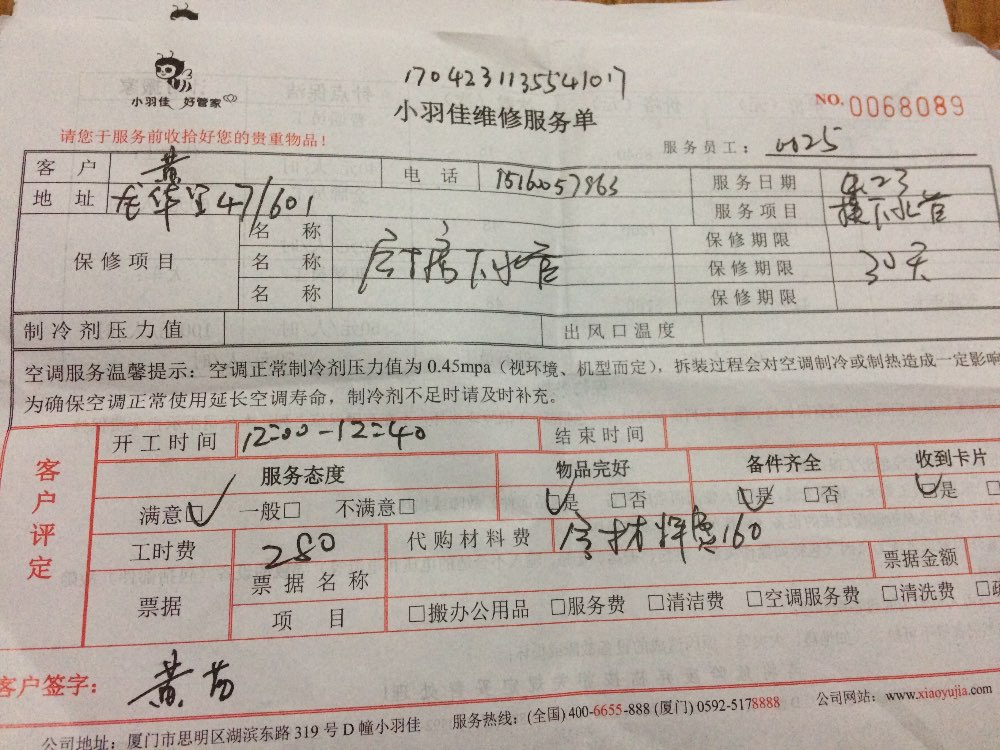 1704231135541017
小羽佳 好管家
小羽佳维修服务单
NO. 0068089
请您于服务前收拾好您的贵重物品！
服务员工： 0025
客户 黄 电话 15160057963 服务日期 4.23
地址 47/601 服务项目 接下水管
保修项目 名称 保修期限
名称 下水管 保修期限 30天
名称 保修期限
制冷剂压力值 出风口温度
空调服务温馨提示：空调正常制冷剂压力值为 0.45mpa（视环境、机型而定），拆装过程会对空调制冷或制热造成一定影响
为确保空调正常使用延长空调寿命，制冷剂不足时请及时补充。
客户评定
开工时间 12:00-12:40 结束时间
服务态度 物品完好 备件齐全 收到卡片
满意□ 一般□ 不满意□ □是 □否 □是 □否 □是 □
工时费 280 代购材料费 160
票据 票据名称 票据金额
项目 □搬办公用品 □服务费 □清洁费 □空调服务费 □清洗费 □
客户签字： 黄
公司地址：厦门市思明区湖滨东路 319 号 D 幢小羽佳 服务热线：(全国) 400-6655-888 (厦门) 0592-5178888 公司网站：www.xiaoyujia.com